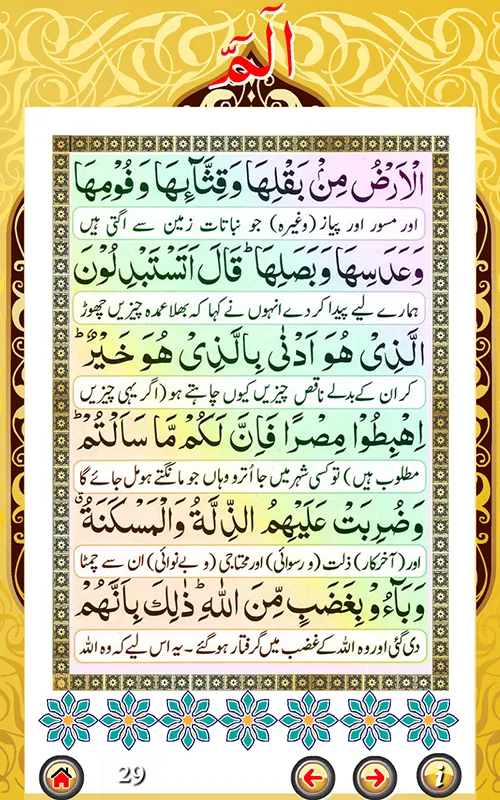 الٓمّٓ
الْاَرْضُ مِنْۢ بَقْلِهَا وَقِثَّآئِهَا وَفُوْمِهَا
اور مسور اور پیاز (وغیرہ) جو نباتات زمین سے اگتی ہیں
وَعَدَسِهَا وَبَصَلِهَا ؕ قَالَ اَتَسْتَبْدِلُوْنَ
ہمارے لیے پیدا کر دے انہوں نے کہا کہ بھلا عمدہ چیزیں چھوڑ
الَّذِىْ هُوَ اَدْنٰى بِالَّذِىْ هُوَ خَيْرٌ ؕ
کر ان کے بدلے ناقص چیزیں کیوں چاہتے ہو (اگر یہی چیزیں
اِهْبِطُوْا مِصْرًا فَاِنَّ لَكُمْ مَّا سَاَلْتُمْ ؕ
مطلوب ہیں) تو کسی شہر میں جا اُترو وہاں جو مانگتے ہو مل جائے گا
وَضُرِبَتْ عَلَيْهِمُ الذِّلَّةُ وَالْمَسْكَنَةُ ۗ
اور (آخرکار) ذلت (و رسوائی) اور محتاجی (و بے نوائی) ان سے چمٹا
وَبَآءُوْ بِغَضَبٍ مِّنَ اللّٰهِ ؕ ذٰلِكَ بِاَنَّهُمْ
دی گئی اور وہ اللہ کے غضب میں گرفتار ہو گئے ۔ یہ اس لیے کہ وہ اللہ
29
i